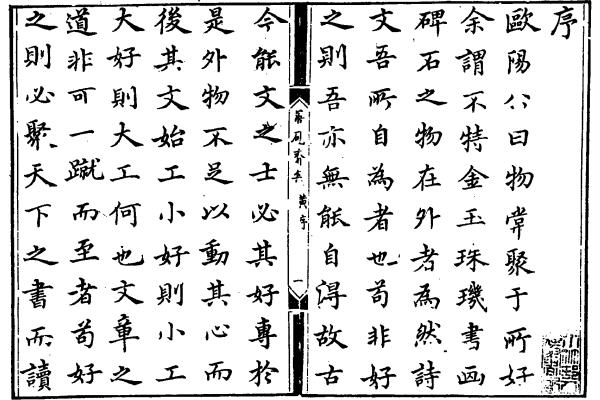 序
歐陽公曰物常聚于所好
余謂不特金玉珠璣書畫
碑石之物在外者為然詩
文吾所自為者也苟非好
之則吾亦無能自得故古
黃序
一
今能文之士必其好專於
是外物不足以動其心而
後其文始工小好則小工
大好則大工何也文章之
道非可一蹴而至者苟好
之則必聚天下之書而讀